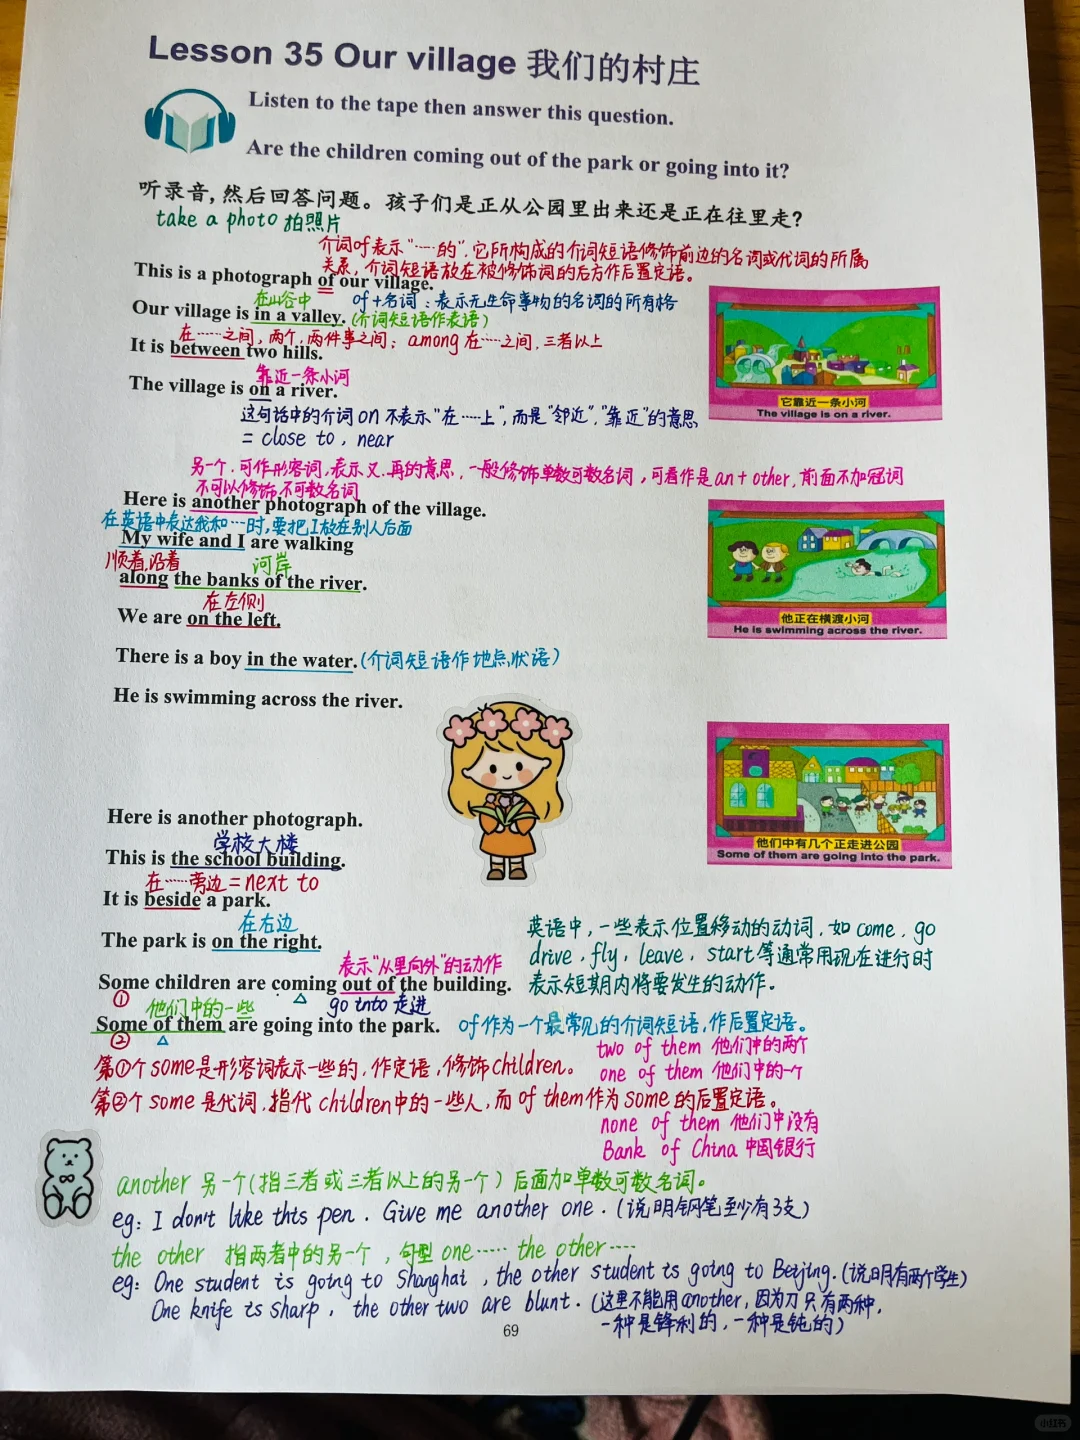 Lesson 35 Our village 我们的村庄
Listen to the tape then answer this question.
Are the children coming out of the park or going into it?
听录音,然后回答问题。孩子们是正从公园里出来还是正在往里走?
take a photo 拍照片
介词of表示"……的",它所构成的介词短语修饰前边的名词或代词的所属
关系,介词短语放在被修饰词的后方作后置定语。
This is a photograph of our village.
在山谷中 of+名词:表示无生命事物的名词的所有格
Our village is in a valley. (介词短语作表语)
在……之间,两个,两件事之间; among 在……之间,三者以上
It is between two hills.
靠近一条小河
The village is on a river.
这句话中的介词 on 不表示"在……上",而是"邻近","靠近"的意思
= close to, near
它靠近一条小河
The village is on a river.
另一个,可作形容词,表示又,再的意思,一般修饰单数可数名词,可看作是an+other,前面不加冠词
不可以修饰不可数名词
Here is another photograph of the village.
在英语中表达我和…时,要把I放在别人后面
My wife and I are walking
顺着,沿着 河岸
along the banks of the river.
在左侧
We are on the left.
There is a boy in the water. (介词短语作地点状语)
He is swimming across the river.
他正在横渡小河
He is swimming across the river.
Here is another photograph.
学校大楼
This is the school building.
在……旁边=next to
It is beside a park.
在右边
The park is on the right.
表示"从里向外"的动作
Some children are coming out of the building.
① 他们中的一些 go tnto 走进
Some of them are going into the park. of作为一个最常见的介词短语,作后置定语。
②
他们中有几个正走进公园
Some of them are going into the park.
英语中,一些表示位置移动的动词,如come, go
drive, fly, leave, start等通常用现在进行时
表示短期内将要发生的动作。
第①个some是形容词表示一些的,作定语,修饰children。
第②个some是代词,指代children中的一些人,而of them作为some的后置定语。
two of them 他们中的两个
one of them 他们中的一个
none of them 他们中没有
Bank of China 中国银行
another 另一个(指三者或三者以上的另一个)后面加单数可数名词。
eg: I don't like this pen. Give me another one. (说明钢笔至少有3支)
the other 指两者中的另一个,句型 one…… the other……
eg: One student is going to Shanghai, the other student is going to Beijing. (说明有两个学生)
One knife is sharp, the other two are blunt. (这里不能用another,因为刀只有两种,
一种是锋利的,一种是钝的)
69